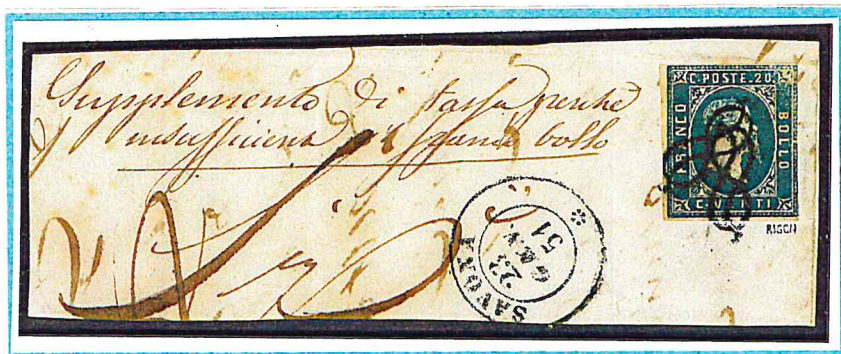 Supplemento di tassa perchè
insufficiente il francobollo
C. POSTE. 20
FRANCO
BOLLO
C. VENTI
RIGON
SAVONA
23
GEN.
51